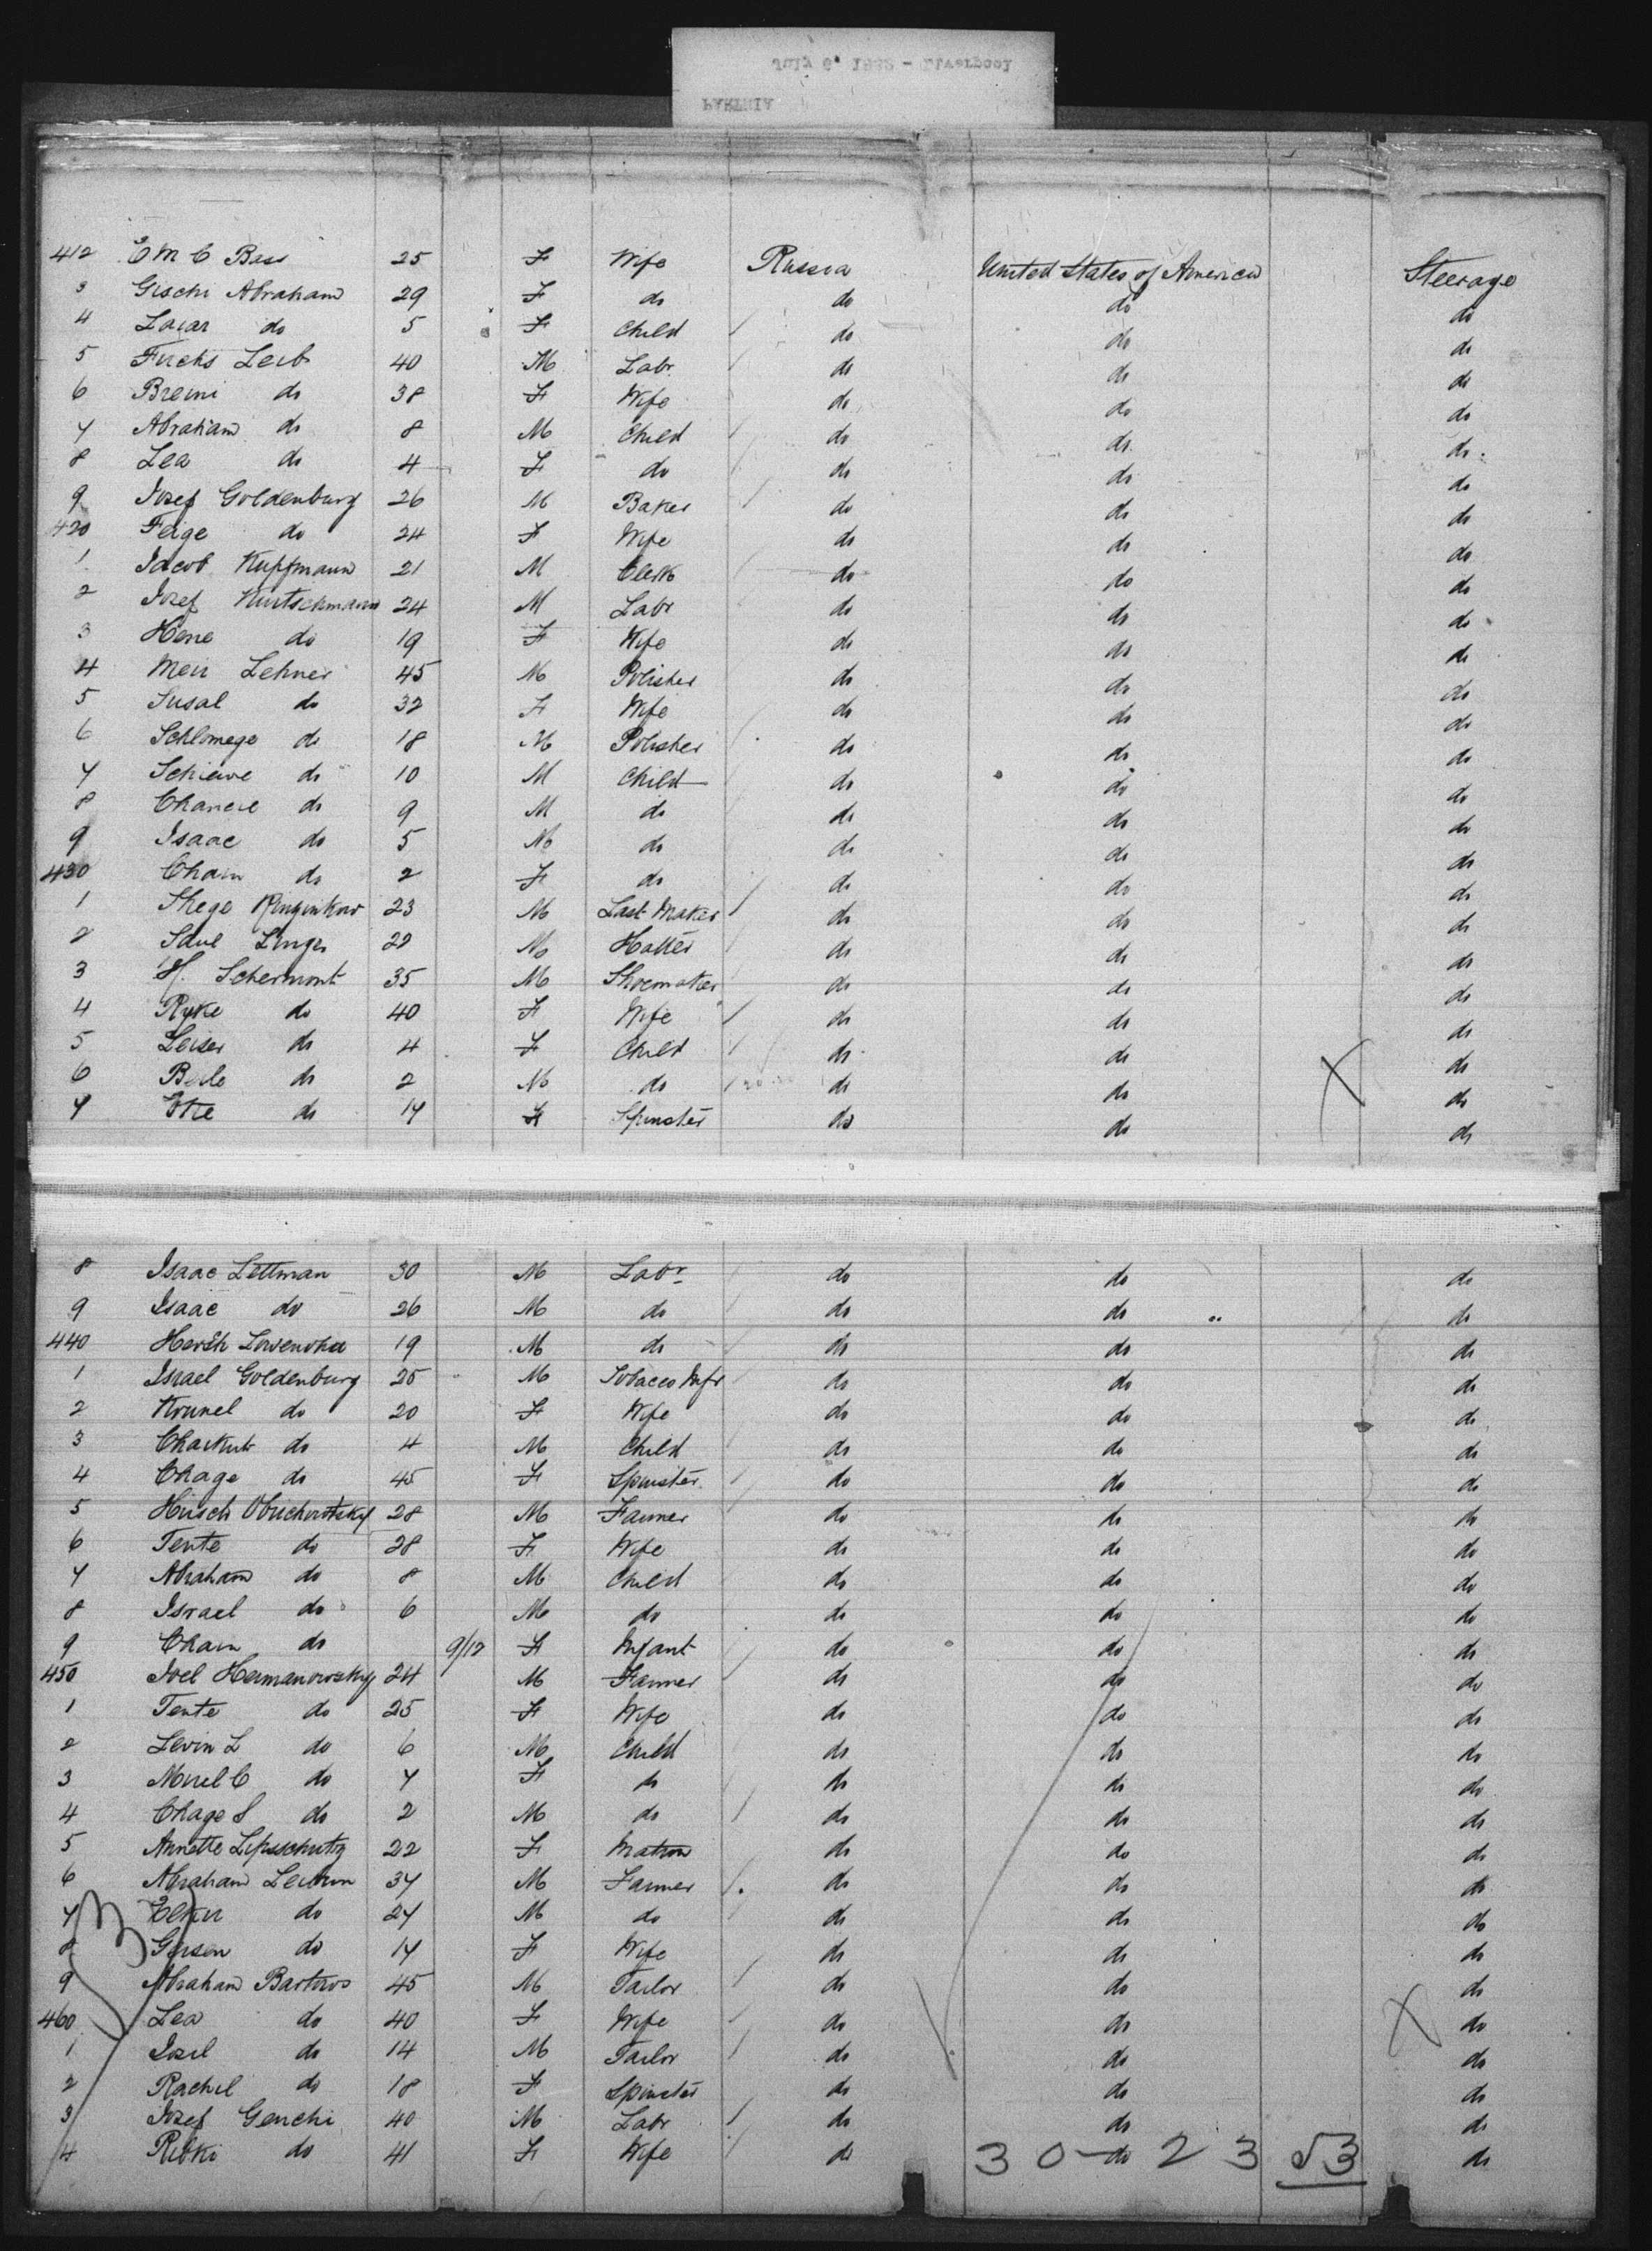 July 6, 1882 - Liverpool
PARTHIA
412 E M C Bass 25 F Wife Russia United States of America Steerage
3 Gischi Abraham 29 F do do do do
4 Lazar do 5 F Child do do do
5 Fuchs Leib 40 M Labr do do do
6 Breini do 38 F Wife do do do
7 Abraham do 8 M Child do do do
8 Lea do 4 F do do do do
9 Josef Goldenburg 26 M Baker do do do
420 Feige do 24 F Wife do do do
1 Jacob Kupfmann 21 M Clerk do do do
2 Josef Kurtschmann 24 M Labr do do do
3 Hene do 19 F Wife do do do
4 Meir Lehner 45 M Polisher do do do
5 Susal do 32 F Wife do do do
6 Schlomege do 18 M Polisher do do do
7 Schieve do 10 M Child do do do
8 Chancie do 9 M do do do do
9 Isaac do 5 M do do do do
430 Chain do 2 F do do do do
1 Shege 23 M Last Maker do do do
2 Saul 22 M Hatter do do do
3 H. Schermont 35 M Shoemaker do do do
4 Ryke do 40 F Wife do do do
5 Leiser do 4 F Child do do do
6 Beile do 2 M do do do do
7 do 17 F Spinster do do do
8 Isaac Littman 30 M Labr do do do
9 Isaac do 26 M do do do do
440 Hersh 19 M do do do do
1 Israel Goldenburg 25 M Tobacco Mfr do do do
2 Krunel do 20 F Wife do do do
3 do 4 M Child do do do
4 Chage do 45 F Spinster do do do
5 Hirsch Obuchowtsky 28 M Farmer do do do
6 Tente do 28 F Wife do do do
7 Abraham do 8 M Child do do do
8 Israel do 6 M do do do do
9 Chain do 9/12 F Infant do do do
450 Joel Hermanowsky 24 M Farmer do do do
1 Tente do 25 F Wife do do do
2 Levin L do 6 M Child do do do
3 C do 7 F do do do do
4 Chage S do 2 M do do do do
5 Annette Lipsschutz 22 F Matron do do do
6 Abraham 37 M Farmer do do do
7 do 27 M do do do do
8 Gersen do 17 F Wife do do do
9 Abraham 45 M Tailor do do do
460 Lea do 40 F Wife do do do
1 do 14 M Tailor do do do
2 Rachel do 18 F Spinster do do do
3 Josef Genchi 40 M Labr do do do
4 Ribki do 41 F Wife do do do
30 - 23 53